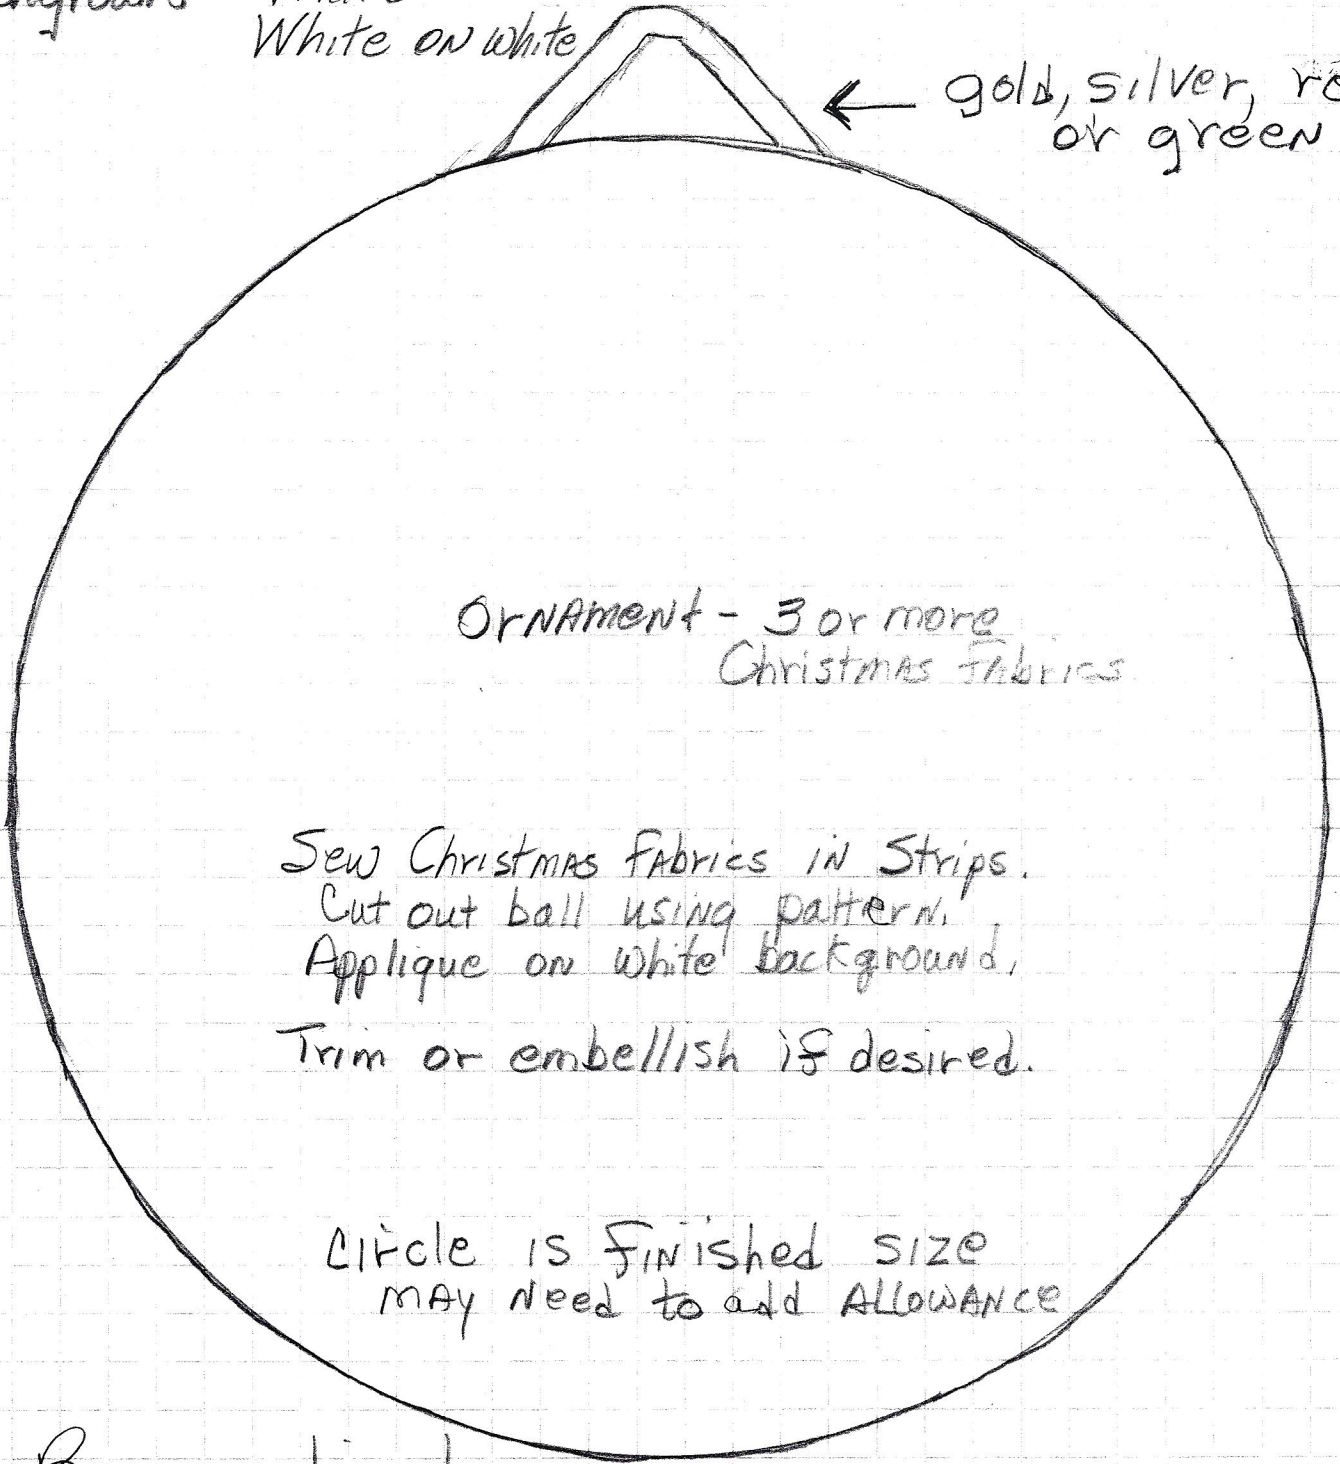 White on white
gold, silver,
or green
Ornament - 3 or more
Christmas Fabrics
Sew Christmas Fabrics in Strips.
Cut out ball using pattern.
Applique on white background.
Trim or embellish if desired.
Circle is finished size
may need to add allowance